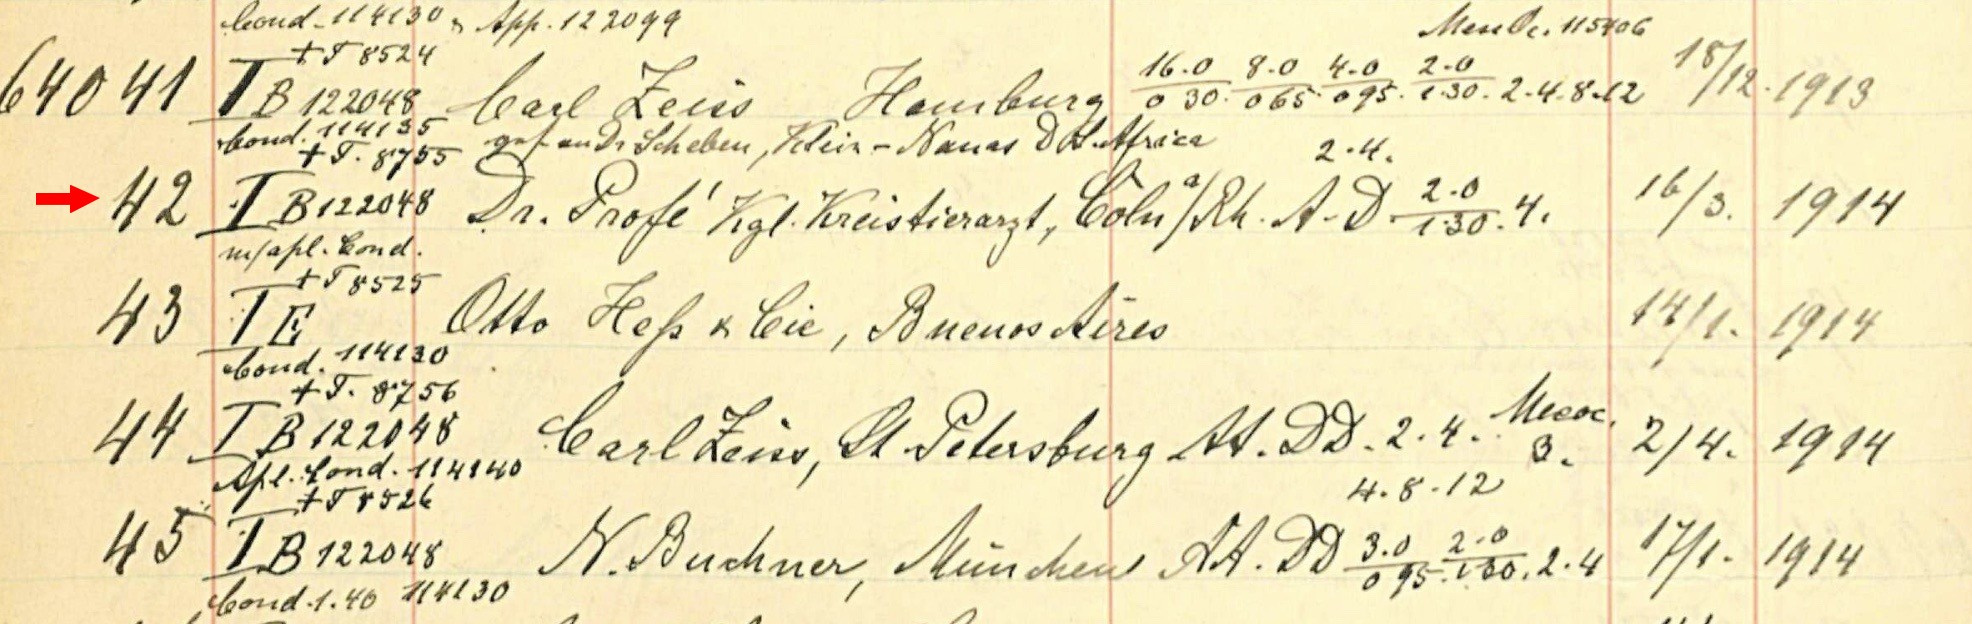 Cond. 114130 App. 122099 114406
+ T 8524
64041 I B 122048 Carl Zeiss Hamburg 16.0/0 30. 8.0/0 65. 4.0/0 95. 2.0/1.30. 2.4.8.12 18/12. 1913
Cond. 114135 Dr Scheben, Klein-Nauas D. S. Africa 2.4.
+ T. 8755
42 I B 122048 Dr. Profé Kgl. Kreistierarzt, Cöln a/Rh. A. D. 2.0/1.30. 4. 16/3. 1914
m/apl. Cond.
+ T 8525
43 I E Otto Heß & Cie, Buenos Aires 14/1. 1914
Cond. 114130
+ T. 8756
44 I B 122048 Carl Zeiss, St. Petersburg AA. DD. 2.4. 3. 2/4. 1914
Apl. Cond. 114140 4.8.12
+ T 8526
45 I B 122048 N. Buchner, München AA. DD 3.0/0 95. 2.0/1.30. 2.4 17/1. 1914
Cond. 1.40 114130